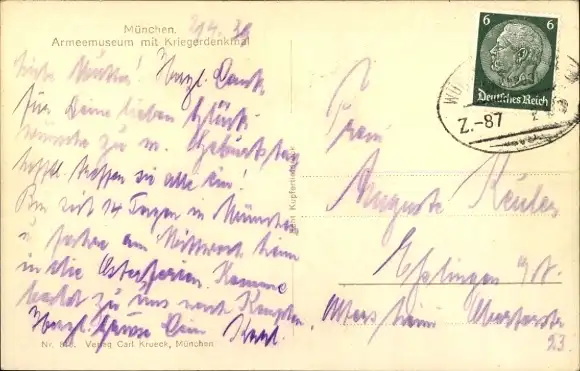 München.
Armeemuseum mit Kriegerdenkmal
Liebe Mutter! Herzl. Dank
für Deine lieben Glück-
wünsche zu m. Geburtstag
hofftl. treffen sie alle ein!
Bin seit 14 Tagen in München
u. fahre am Mittwoch heim
in die Osterferien. Komme
bald zu uns nach Kempten.
Herzl. Grüsse Dein Karl
Nr. Verlag Carl Krueck, München
Kupfertiefdruck
6 6
Deutsches Reich
Z.-87
Frau
Auguste
Esslingen a/N.
Altersheim
23